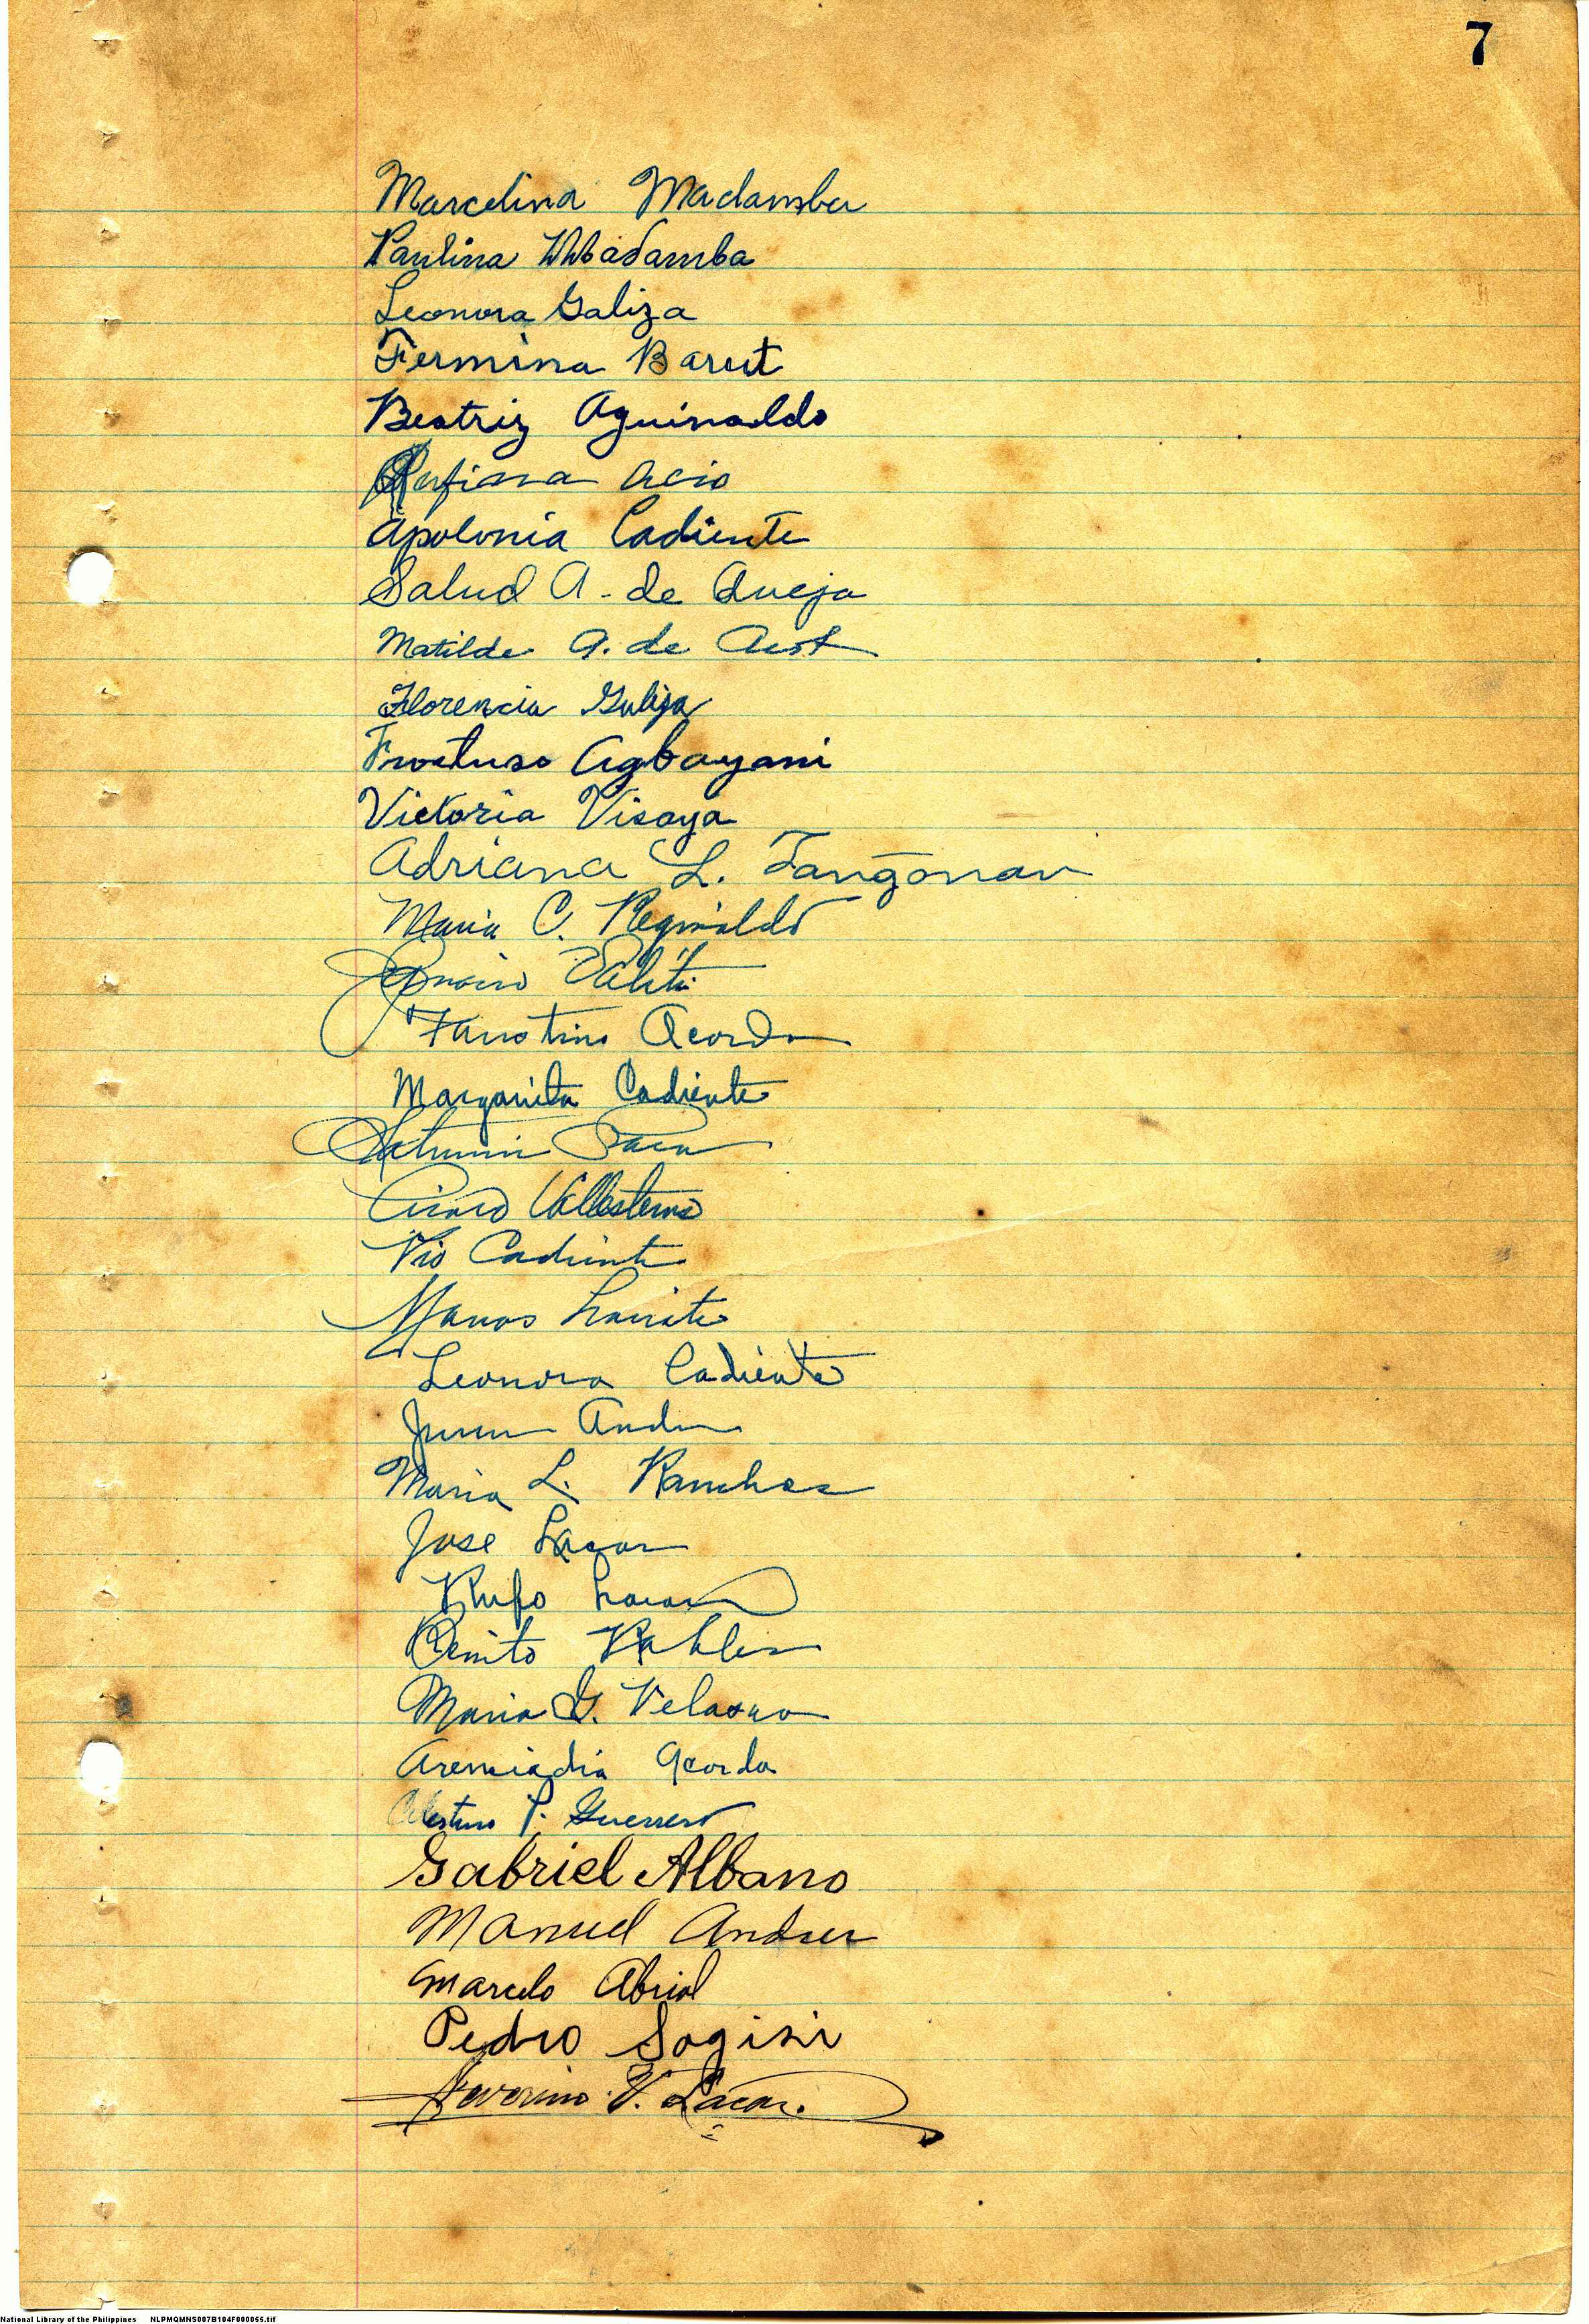 7
Marcelina Madamba
Paulina Madamba
Leonora Galiza
Fermina Barut
Beatriz Aguinaldo
Rufiana Acio
Apolonia Cadiente
Salud A. de Queja
Matilde A. de Acosta
Florencia Galiza
Fructuso Agbayani
Victoria Visaya
Adriana L. Tangonan
Maria C. Reginaldo
Faustino Acorda
Margarita Cadiente
Ciriaco Vallesteros
Pio Cadiente
Marcos
Leonora Cadiente
Andres
Maria L. Ranchez
Jose Lacar
Rufo Lacar
Benito Robles
Maria G. Velasco
Acorda
Celestino P. Guerrero
Gabriel Albano
Manuel Andres
Marcelo Abriol
Pedro Sagisi
Severino V. Lacar.
National Library of the Philippines NLPMQMNS007B104F000055.tif